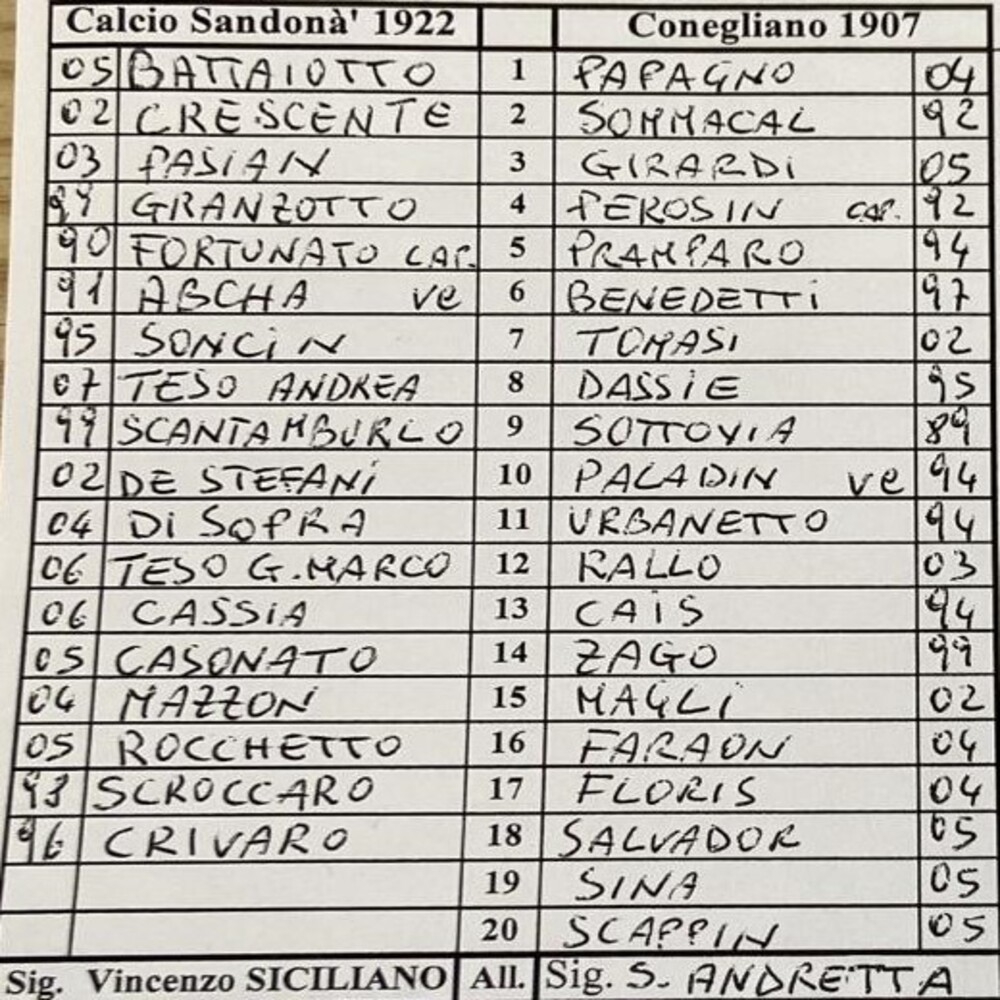 Calcio Sandonà' 1922 Conegliano 1907
05 BATTAIOTTO 1 PAPAGNO 04
02 CRESCENTE 2 SOMMACAL 92
03 PASIAN 3 GIRARDI 05
GRANZOTTO 4 PEROSIN CAP. 92
90 FORTUNATO CAP. 5 PRAMPARO 94
91 ABCHA ve 6 BENEDETTI 97
95 SONCIN 7 TOMASI 02
07 TESO ANDREA 8 DASSIE 95
99 SCANTAMBURLO 9 SOTTOVIA 89
02 DE STEFANI 10 PALADIN ve 94
04 DI SOPRA 11 URBANETTO 94
06 TESO G.MARCO 12 RALLO 03
06 CASSIA 13 CAIS 94
05 CASONATO 14 ZAGO 99
04 MAZZON 15 MAGLI 02
05 ROCCHETTO 16 FARAON 04
93 SCROCCARO 17 FLORIS 04
96 CRIVARO 18 SALVADOR 05
19 SINA 05
20 SCAPPIN 05
Sig. Vincenzo SICILIANO All. Sig. S. ANDRETTA